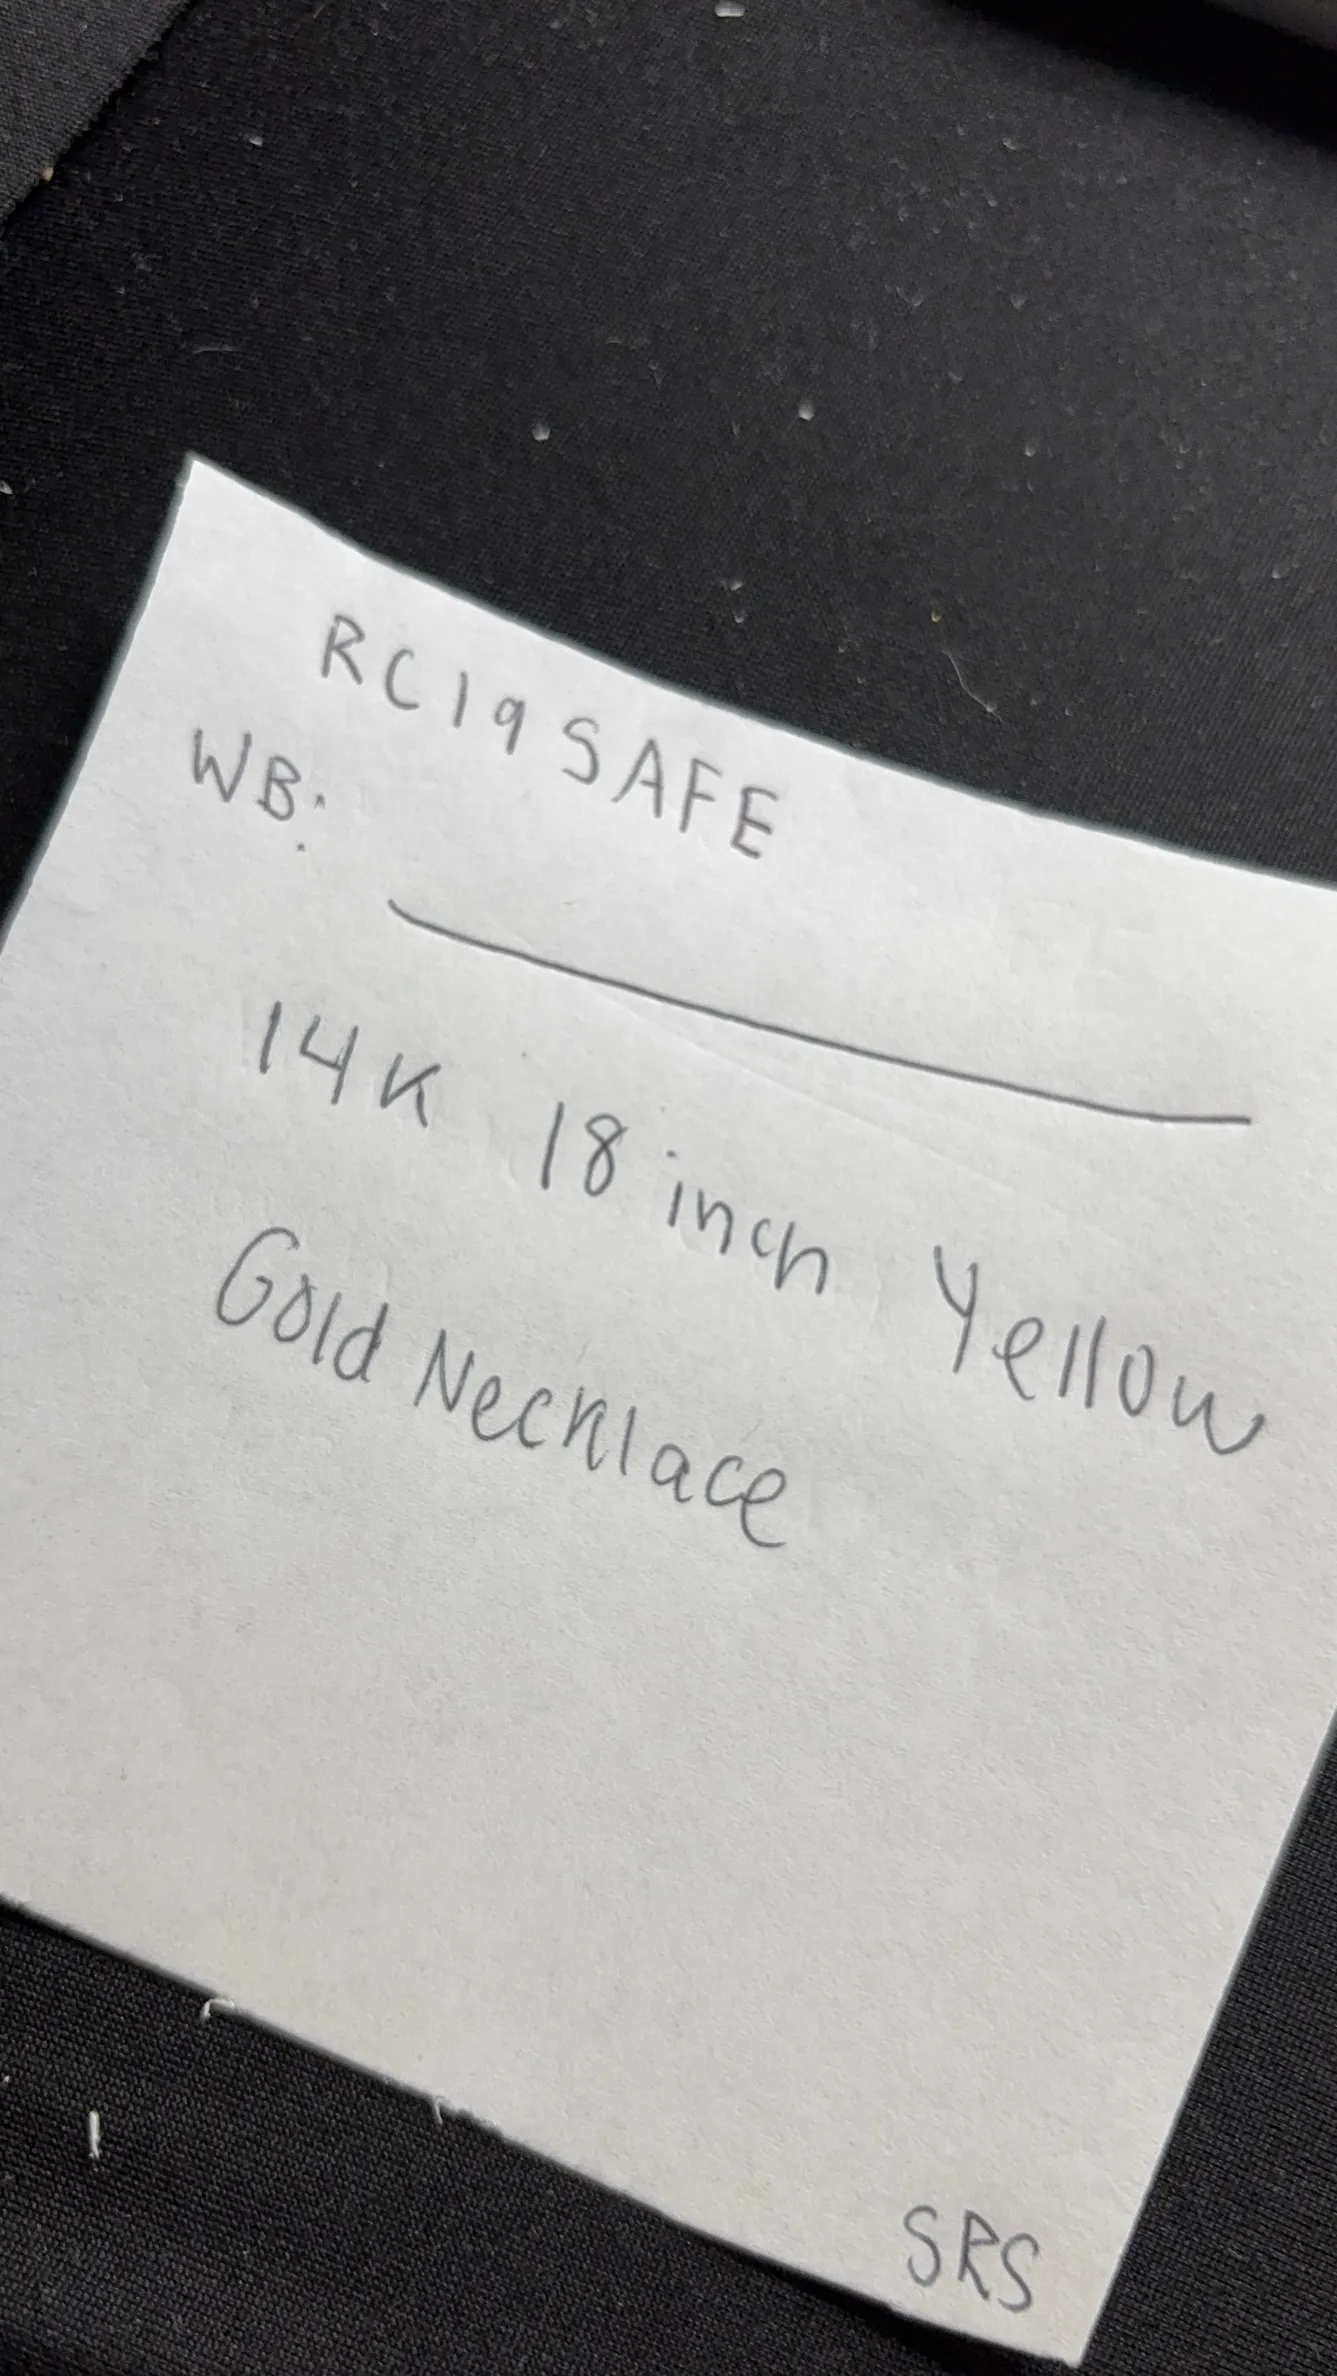 RC19SAFE
WB:
14K 18 inch Yellow
Gold Necklace
SRS